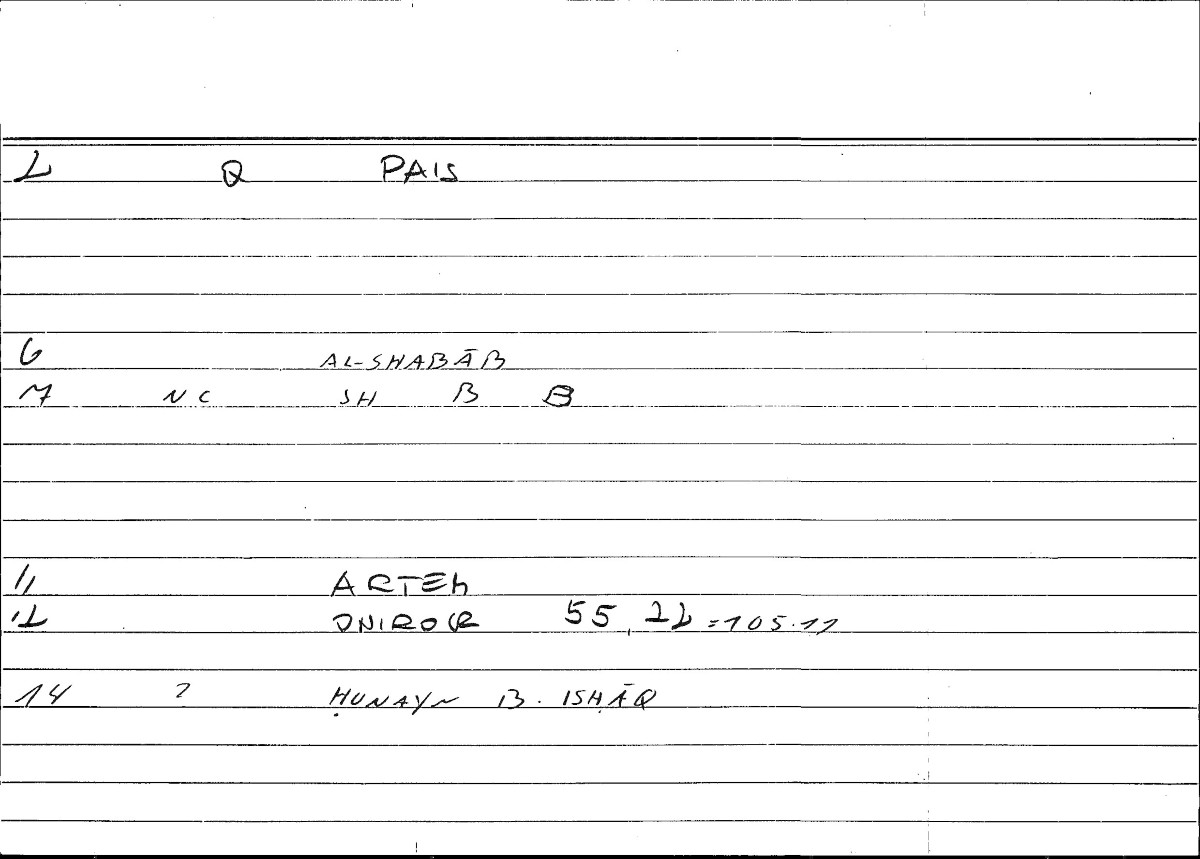 2 Q PAIS
6 AL-SHABĀB
7 NC SH B B
11 ARTEM
12 ONIROCR 55,22 = 105.11
14 ? ḤUNAYN B. ISḤĀQ